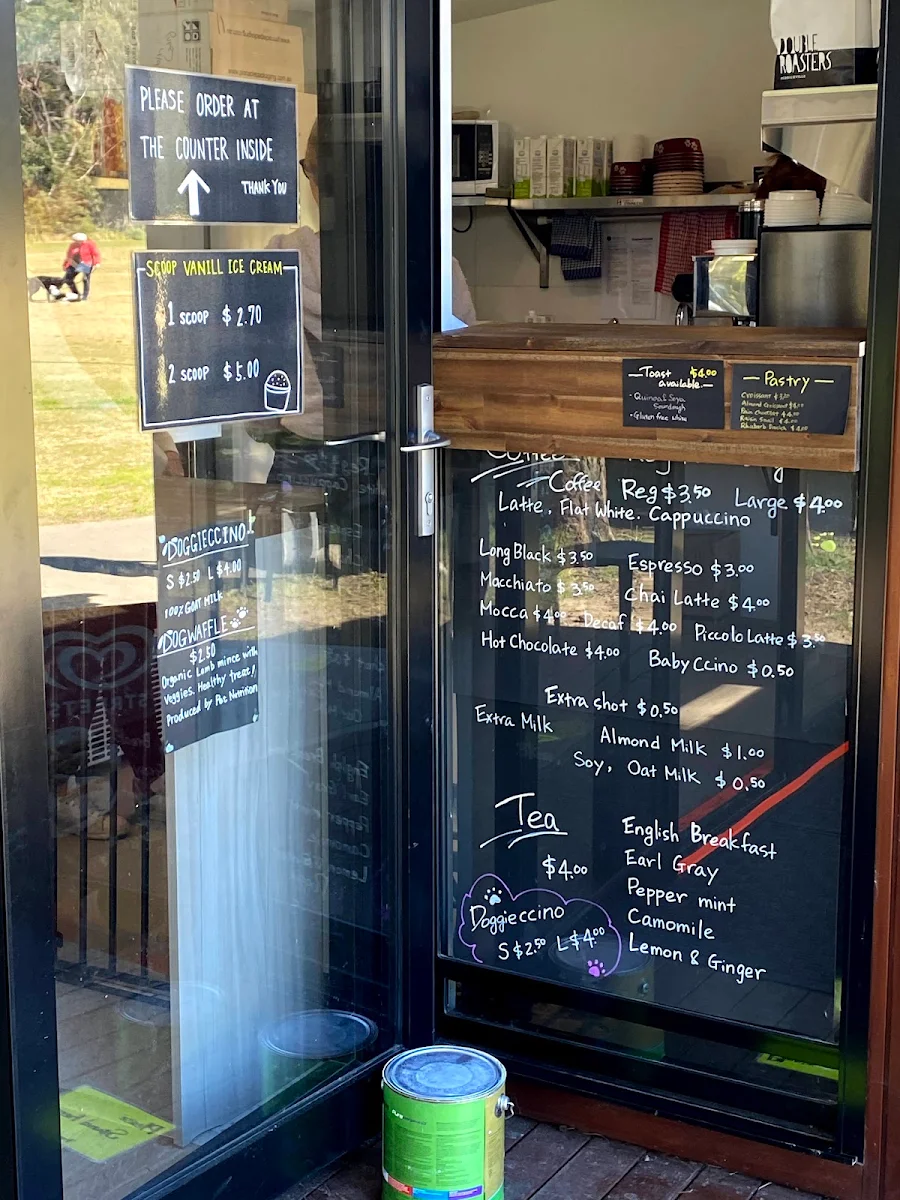 PLEASE ORDER AT
THE COUNTER INSIDE
THANK YOU
SCOOP VANILL ICE CREAM
1 SCOOP $2.70
2 SCOOP $5.00
DOGGIECCINO
S $2.50 L $4.00
100% GOAT MILK
DOGWAFFLE
$2.50
Organic Lamb mince with
Veggies. Healthy treat!
Produced by Pet Nutrition
DOUBLE
ROASTERS
Toast $4.00
available
- Quinoa & Soya
Sourdough
- Gluten free white
Pastry
Croissant
Almond Croissant
Coffee Reg
Coffee Reg $3.50 Large $4.00
Latte, Flat White. Cappuccino
Long Black $3.50 Espresso $3.00
Macchiato $3.50 Chai Latte $4.00
Mocca $4.00 Decaf $4.00 Piccolo Latte $3.50
Hot Chocolate $4.00 Baby Ccino $0.50
Extra shot $0.50
Extra Milk Almond Milk $1.00
Soy, Oat Milk $0.50
Tea
$4.00
English Breakfast
Earl Gray
Pepper mint
Camomile
Lemon & Ginger
Doggieccino
S $2.50 L $4.00